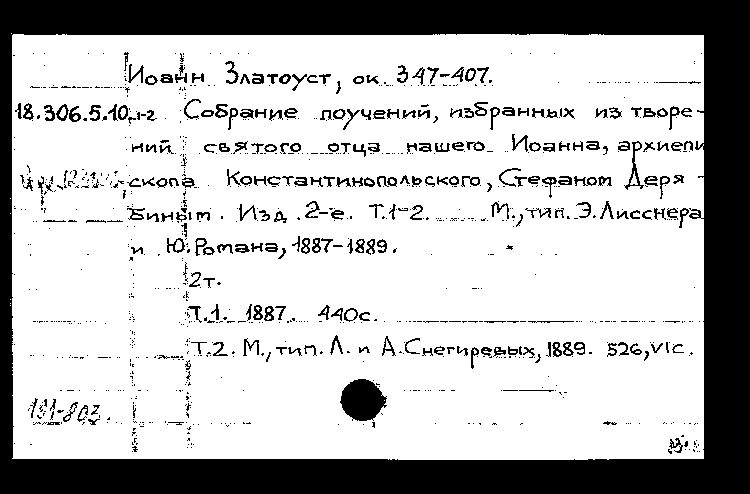 Иоанн Златоуст, ок. 347-407.
18.306.5.10,1-2 Собрание поучений, избранных из творе-
ний святого отца нашего Иоанна, архиепи
скопа Константинопольского, Стефаном Деря-
биным. Изд. 2-е. Т.1-2. М., тип. Э. Лисснера
и Ю. Романа, 1887-1889.
2т.
Т.1. 1887. 440с.
Т.2. М., тип. Л. и А. Снегиревых, 1889. 526, VI с.
181-803.